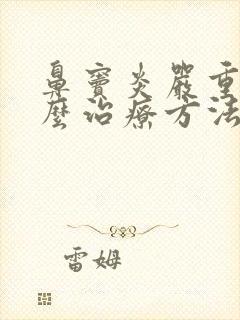 鼻竇炎嚴重
麼治療方法
雷姆